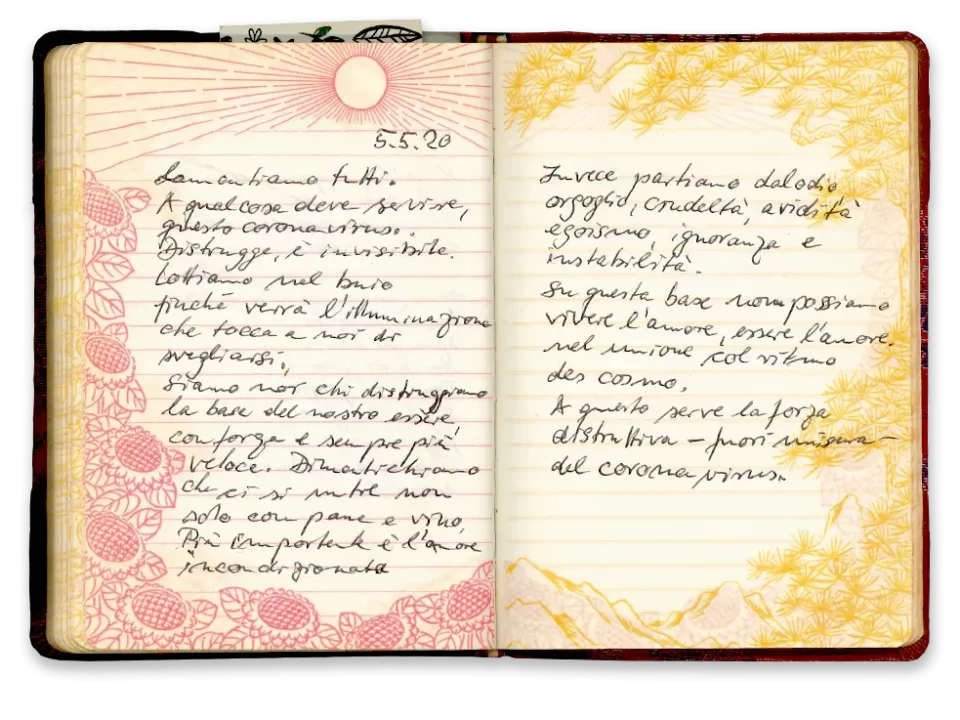 5.5.20
Lamentiamo tutti.
A qualcosa deve servire,
questo coronavirus.
Distrugge, è invisibile.
Lottiamo nel buio
finché verrà l'illuminazione
che tocca a noi di
svegliarsi.
Siamo noi chi distruggiamo
la base del nostro essere,
con forza e sempre più
veloce. Dimentichiamo
che ci si nutre non
solo con pane e vino,
Più importante è l'amore
incondizionata
Invece partiamo dal odio,
orgoglio, crudeltà, avidità
egoismo, ignoranza e
instabilità.
Su questa base non possiamo
vivere l'amore, essere l'amore.
nel unione col ritmo
del cosmo.
A questo serve la forza
distruttiva – fuori misura –
del coronavirus.